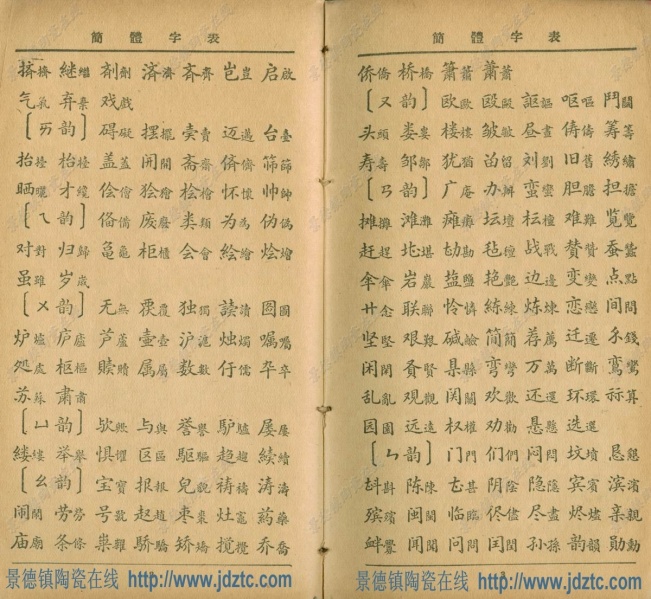 簡體字表
挤擠 继繼 剂劑 济濟 齐齊 岂豈 启啟
气氣 弃棄 戏戲
〔ㄞ韵〕 碍礙 摆擺 卖賣 迈邁 台臺
抬擡 枱檯 盖蓋 𫔭開 斋齋 侪儕 筛篩
晒曬 才纔 侩儈 狯獪 桧檜 怀懷 帅帥
〔ㄟ韵〕 俻備 废廢 类類 为為 伪僞
对對 归歸 龟龜 柜櫃 会會 绘繪 烩燴
虽雖 岁歲
〔ㄨ韵〕 无無 独獨 读讀 图圖
炉爐 庐廬 芦蘆 壶壺 沪滬 烛燭 嘱囑
处處 枢樞 赎贖 属屬 数數 卒
苏蘇 肃肅
〔ㄩ韵〕 欤歟 与與 誉譽 驴驢 屡屢
缕縷 举舉 惧懼 区區 驱驅 趋趨 续續
〔ㄠ韵〕 宝寶 报報 祷禱 涛濤
闹鬧 劳勞 号號 赵趙 枣棗 灶竈 药藥
庙廟 条條 骄驕 矫矯 搅攪 乔喬
簡體字表
侨僑 桥橋 箫簫 萧蕭
〔ㄡ韵〕 欧歐 殴毆 讴謳 呕嘔 鬥鬭
头頭 娄婁 楼樓 皱皺 昼晝 俦儔 筹籌
寿壽 邹鄒 犹猶 留 刘劉 旧舊 绣繡
〔ㄢ韵〕 广庵 办辦 蛮蠻 胆膽 担擔
摊攤 滩灘 瘫癱 坛壇 坛檀 难難 览覽
赶趕 堪 勘 毡氈 战戰 赞贊 蚕蠶
伞傘 岩巖 盐鹽 艳艷 边邊 变變 点點
廿念 联聯 怜憐 练練 炼煉 恋戀 间間
坚堅 艰艱 碱鹼 简簡 荐薦 迁遷 钱錢
闲閑 贤賢 县縣 弯彎 万萬 断斷 鸾鸞
乱亂 观觀 关關 欢歡 还還 环環 祘算
园園 远遠 权權 劝勸 悬懸 选選
〔ㄣ韵〕 门門 们們 问問 坟墳 恳懇
斟 陈陳 甚 阴陰 隐隱 宾賓 滨濱
殡殯 闽閩 临臨 尽儘 尽盡 烬燼 亲親
衅釁 闻聞 问問 闰閏 孙孫 韵韻 勋勳
景德镇陶瓷在线 http://www.jdztc.com/
景德镇陶瓷在线 http://www.jdztc.com/